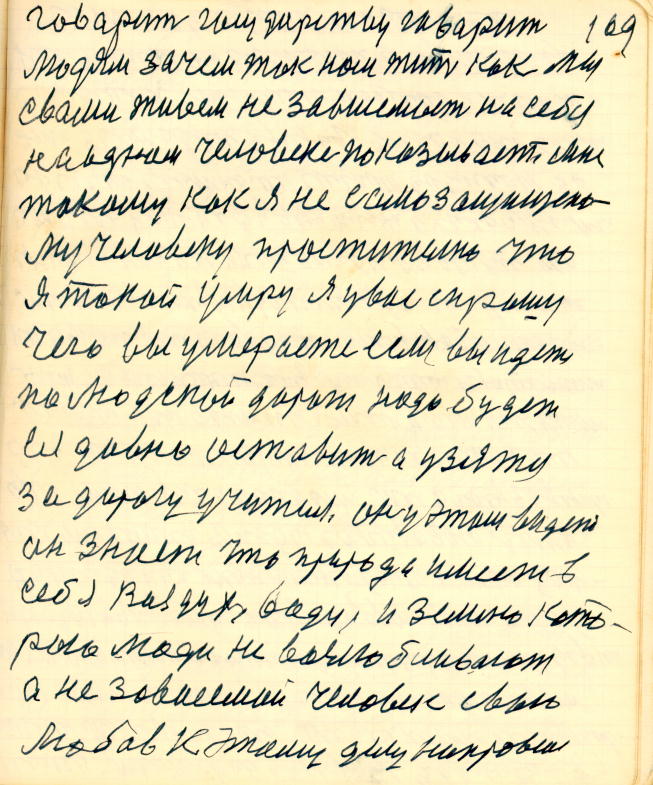 говарит государству говарит 169
людям зачем так нам жит как мы
свами живем не зависимост на себе
на адном человеке показывает мне
такому как я не самозащищено
му человеку простительно что
я такой умру я увас спрашу
чего вы умераете если вы идете
па людской дароги надо будет
ее давно оставит а узяту
за дарогу учителя он у этом видет
он знает что природа имеет в
себя Ваздух, ваду, и землю кото-
раю люди не
а не зависимай человек сваю
любов к этаму делу направел